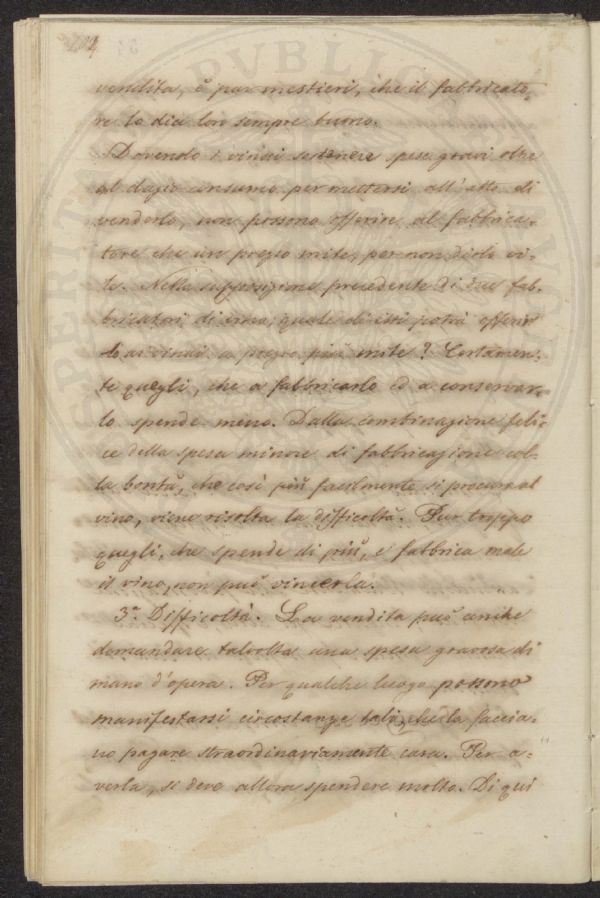 204
vendita, è pur mestieri, che il fabbricato=
re lo dia lor sempre buono.
Dovendo i vinai sostenere spese gravi oltre
al dazio consumo per mettersi all' atto di
venderlo, non possono offerire al fabbrica=
tore che un prezzo mite, per non dirlo vi=
le. Nella supposizione precedente di due fab=
bricatori di vino, quale di essi potrà offerir
lo ai vinai a prezzo più mite? Certamen=
te quegli, che a fabbricarlo ed a conservar=
lo spende meno. Dalla combinazione feli=
ce della spesa minore di fabbricazione col=
la bontà, che così più facilmente si procura al
vino, viene risolta la difficoltà. Pur troppo
quegli, che spende di più, e fabbrica male
il vino, non può vincerla.
3.a Difficoltà. La vendita può anche
domandare talvolta una spesa gravosa di
mano d'opera. Per qualche luogo possono
manifestarsi circostanze tali, che la faccia=
no pagare straordinariamente cara. Per a=
verla, si deve allora spendere molto. Di qui